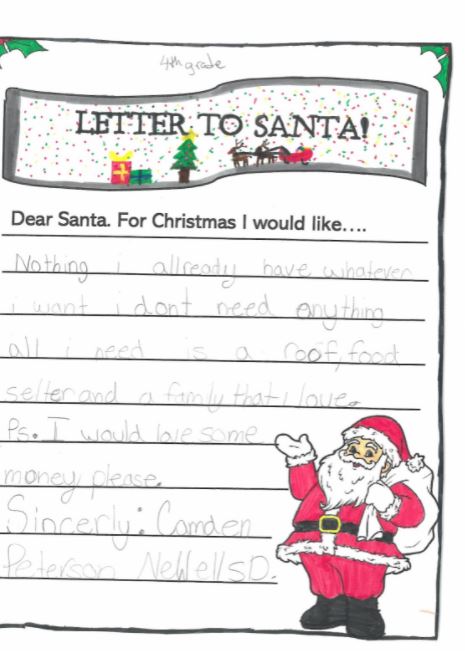 4th grade
LETTER TO SANTA!
Dear Santa. For Christmas I would like....
Nothing i allready have whatever
i want i dont need anything
all i need is a roof, food
selter and a family that i love.
Ps. I would love some
money please.
Sincerly: Camden
Peterson Newells D.